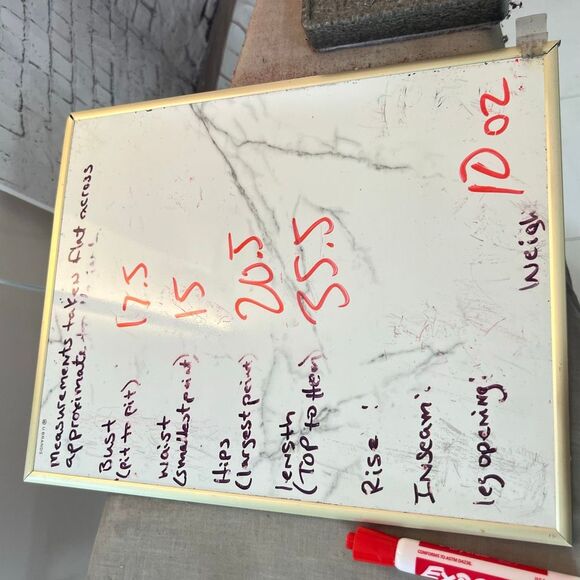 Measurements taken flat across
approximate
Bust 17.5
(Pit to pit)
Waist 15
(smallest point)
Hips 20.5
(largest point)
length 35.5
(TOP to Hem)
Rise :
Inseam :
leg opening :
Weigh 10 oz
CONFORMS TO ASTM D4236
EXPO